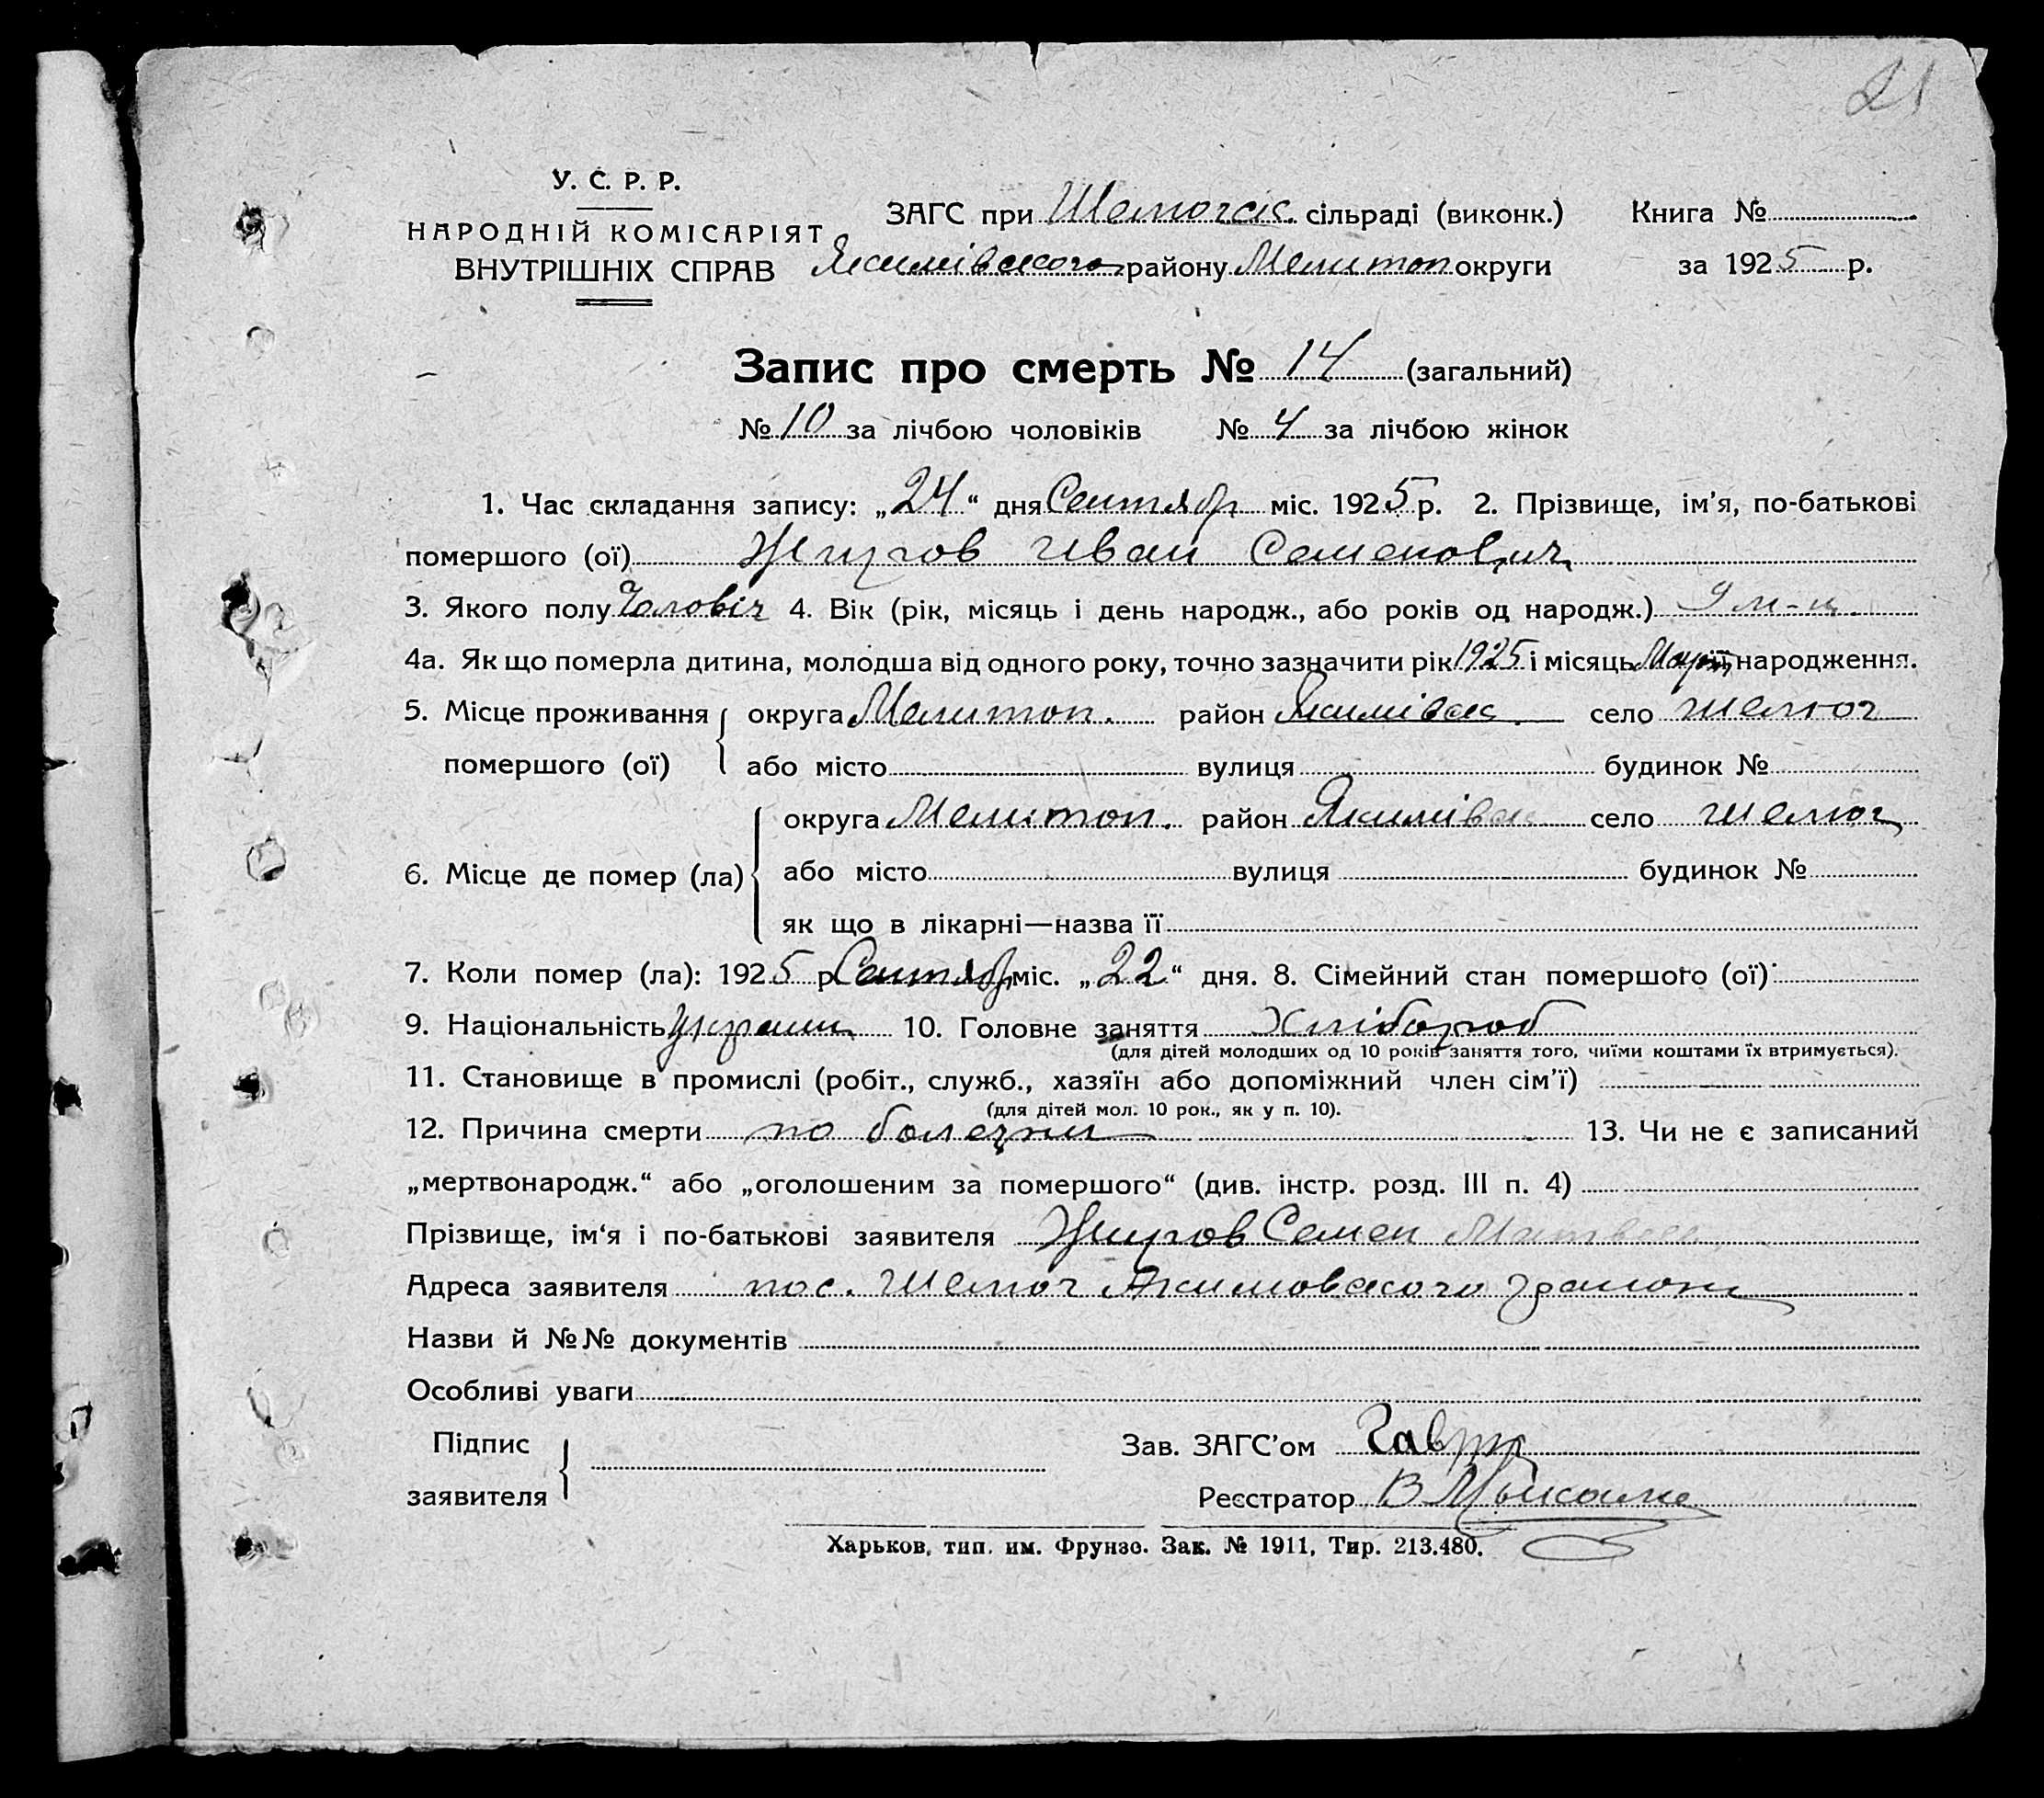 21
У. С. Р. Р.
НАРОДНІЙ КОМІСАРІЯТ
ВНУТРІШНІХ СПРАВ
ЗАГС при Шелюгсіс. сільраді (виконк.) Книга №
Якимівского району Мелитоп округи за 1925 р.
Запис про смерть № 14 (загальний)
№ 10 за лічбою чоловіків № 4 за лічбою жінок
1. Час складання запису: „24“ дня Сентябр міс. 1925 р. 2. Прізвище, ім’я, по-батькові
помершого (ої) Жиров Иван Семенович
3. Якого полу Чоловіч 4. Вік (рік, місяць і день народж., або років од народж.) 9 м-ц.
4а. Як що померла дитина, молодша від одного року, точно зазначити рік 1925 і місяць Март народження.
5. Місце проживання округа Мелитоп. район Якимівск. село Шелюг
помершого (ої) або місто вулиця будинок №
округа Мелитоп. район Якимівск село Шелюг
6. Місце де помер (ла) або місто вулиця будинок №
як що в лікарні—назва її
7. Коли помер (ла): 1925 р. Сентябр міс. „22“ дня. 8. Сімейний стан помершого (ої)
9. Національність Украин 10. Головне заняття Хлібороб
(для дітей молодших од 10 років заняття того, чиїми коштами їх втримується).
11. Становище в промислі (робіт., служб., хазяїн або допоміжний член сім’ї)
(для дітей мол. 10 рок., як у п. 10).
12. Причина смерти по болезни 13. Чи не є записаний
„мертвонародж.“ або „оголошеним за помершого“ (див. інстр. розд. III п. 4)
Прізвище, ім‘я і по-батькові заявителя Жиров Семен Матвеев
Адреса заявителя пос. Шелюг Акимовского району
Назви й №№ документів
Особливі уваги
Підпис
заявителя
Зав. ЗАГС’ом
Реєстратор В
Харьков, тип. им. Фрунзе. Зак. № 1911, Тир. 213.480.